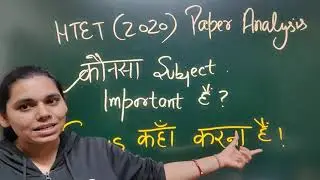 HTET (2020) Paper Analysis
कौनसा Subject
Important है ?
कहाँ करना है !